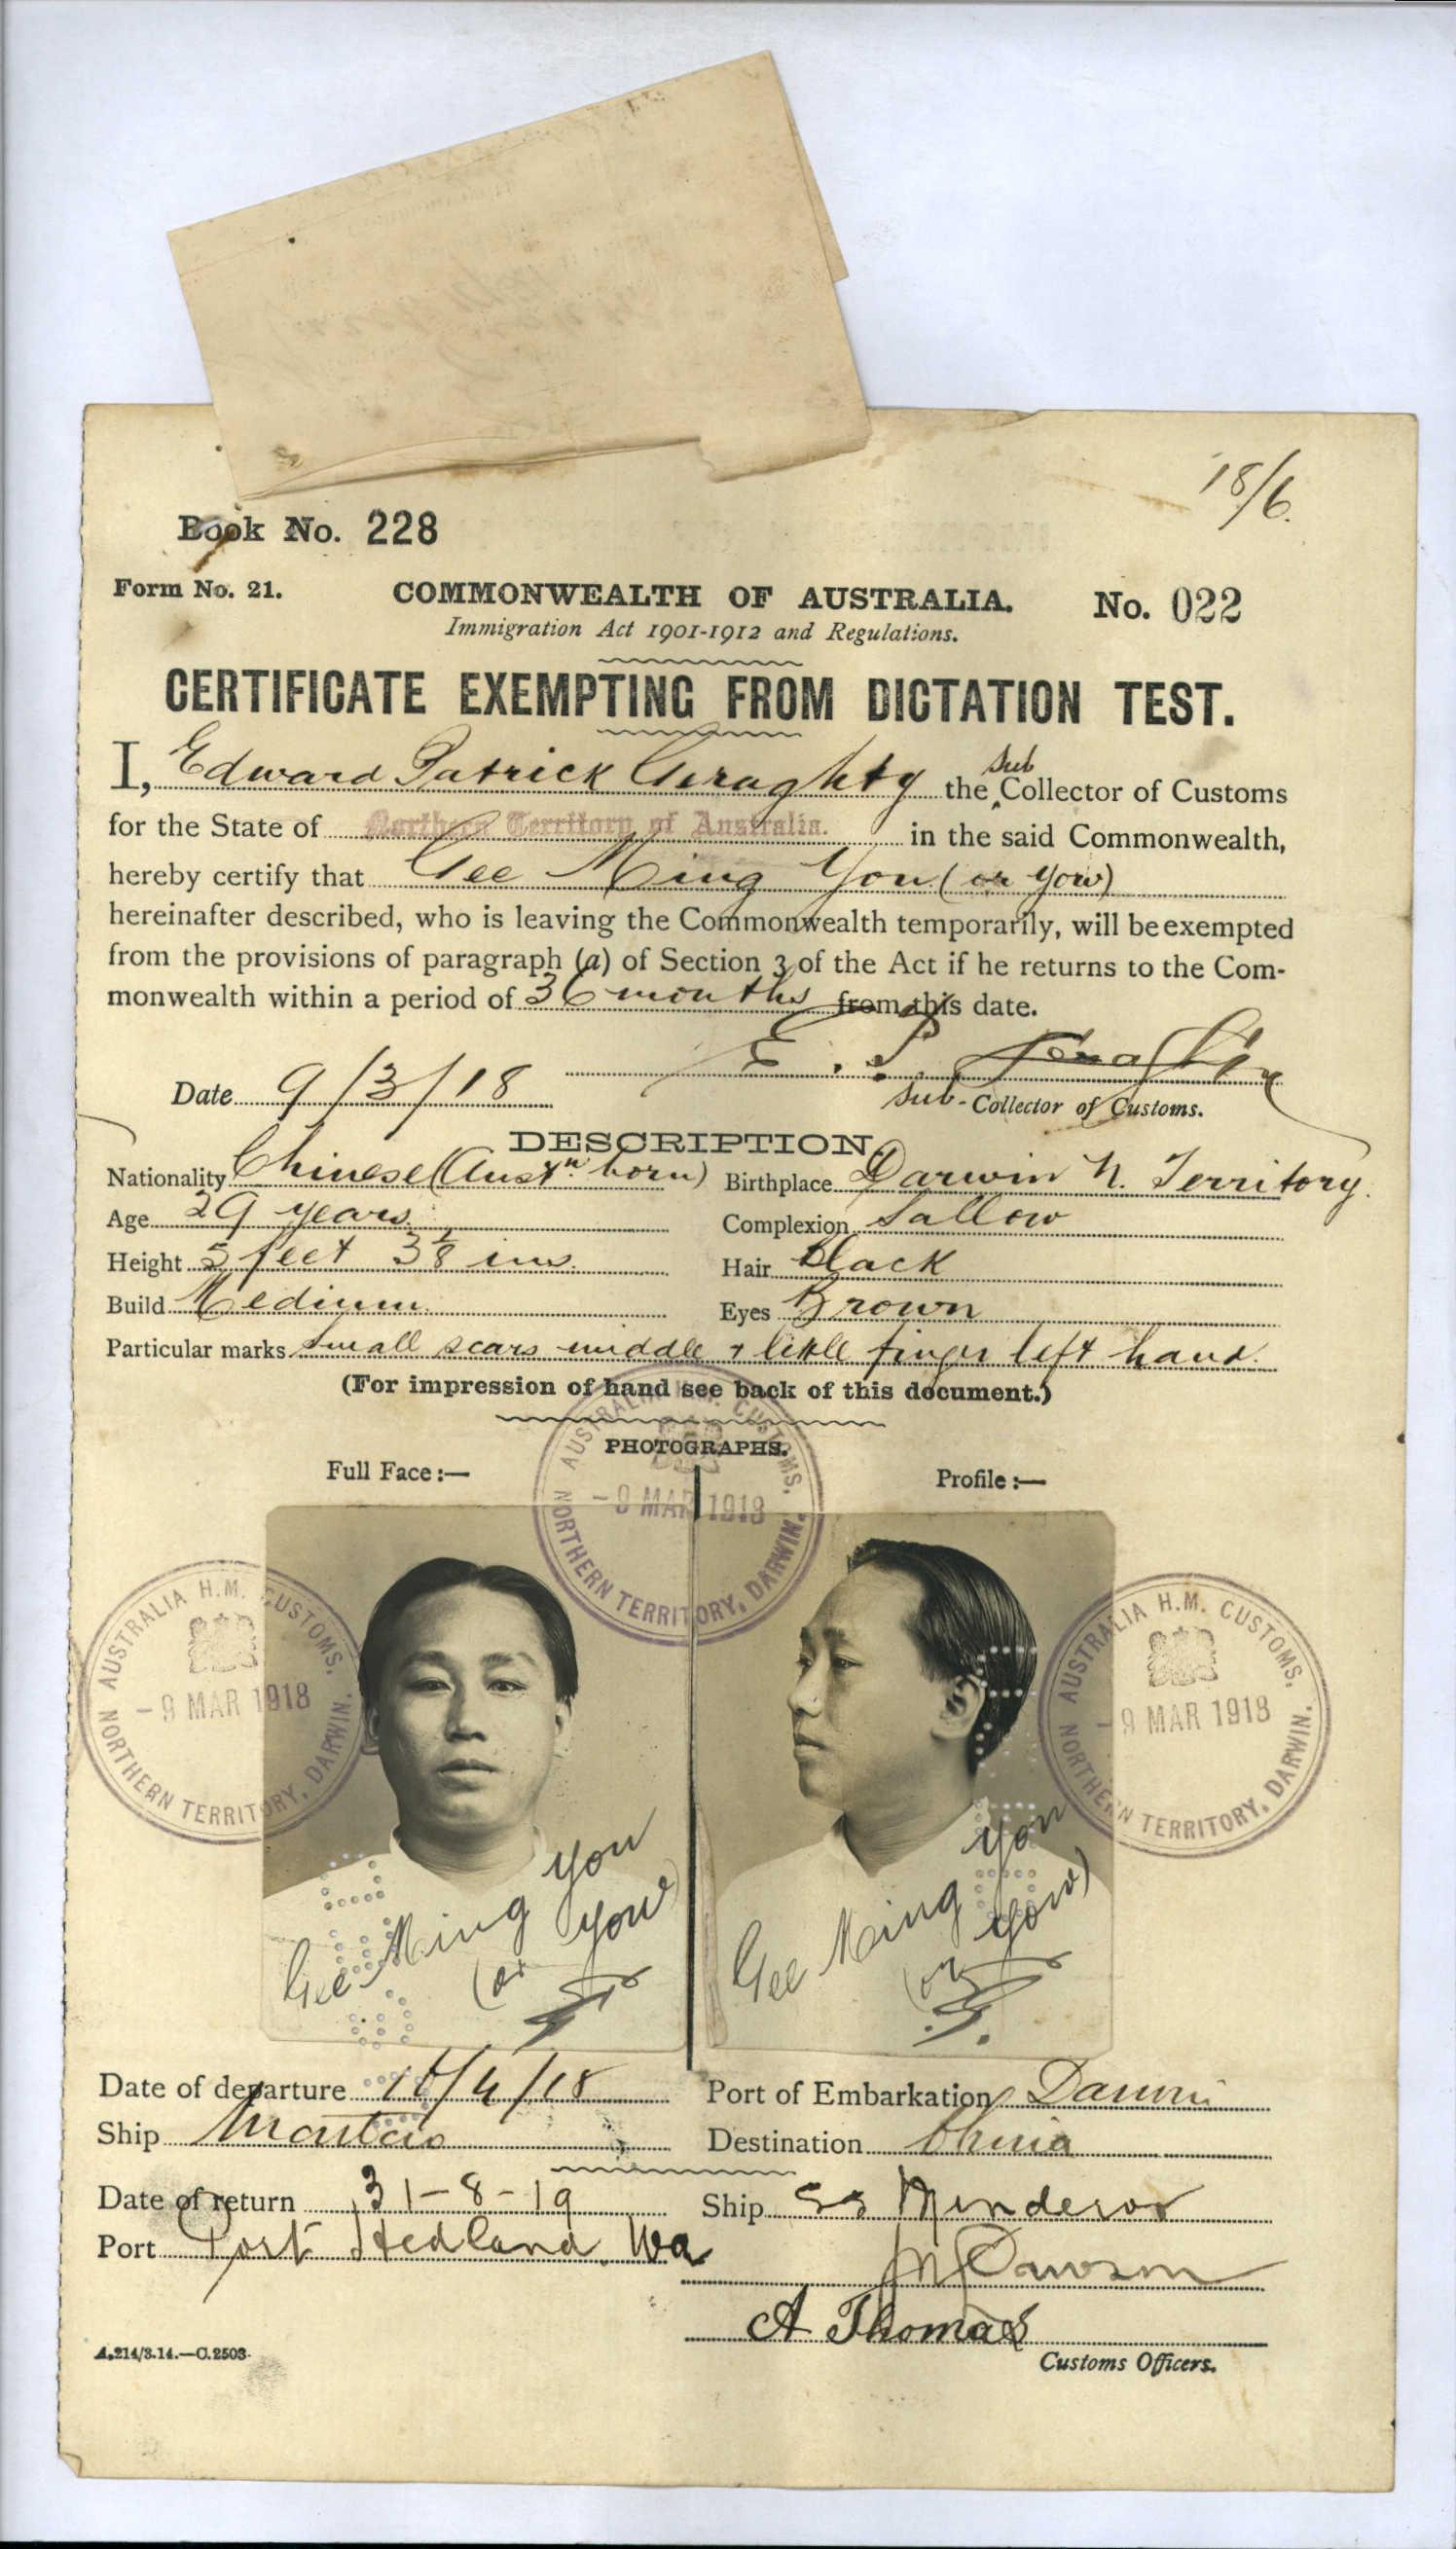 18/6.
Book No. 228
Form No. 21. COMMONWEALTH OF AUSTRALIA. No. 022
Immigration Act 1901-1912 and Regulations.
CERTIFICATE EXEMPTING FROM DICTATION TEST.
I, Edward Patrick Geraghty the Sub Collector of Customs
for the State of Northern Territory of Australia. in the said Commonwealth,
hereby certify that Gee Ming You (or Yow)
hereinafter described, who is leaving the Commonwealth temporarily, will be exempted
from the provisions of paragraph (a) of Section 3 of the Act if he returns to the Com-
monwealth within a period of 36 months from this date.
E. P. Geraghty
Date 9/3/18 Sub-Collector of Customs.
DESCRIPTION
Nationality Chinese (Austn. born) Birthplace Darwin N. Territory.
Age 29 years. Complexion Sallow
Height 5 feet ins. Hair Black
Build Medium. Eyes Brown
Particular marks Small scars middle & little finger left hand.
(For impression of hand see back of this document.)
PHOTOGRAPHS.
Full Face:— Profile:—
AUSTRALIA H.M. CUSTOMS.
-9 MAR 1918
NORTHERN TERRITORY, DARWIN.
AUSTRALIA H.M. CUSTOMS.
-9 MAR 1918
NORTHERN TERRITORY, DARWIN.
AUSTRALIA H.M. CUSTOMS.
-9 MAR 1918
NORTHERN TERRITORY, DARWIN.
Gee Ming You
(or Yow)
Gee Ming You
(or Yow)
Date of departure 16/4/18 Port of Embarkation Darwin
Ship Destination China
Date of return 31-8-19 Ship SS Minderoo
Port Port Hedland. Wa
Dawson
A Thomas
A.214/3.14.—C.2503. Customs Officers.